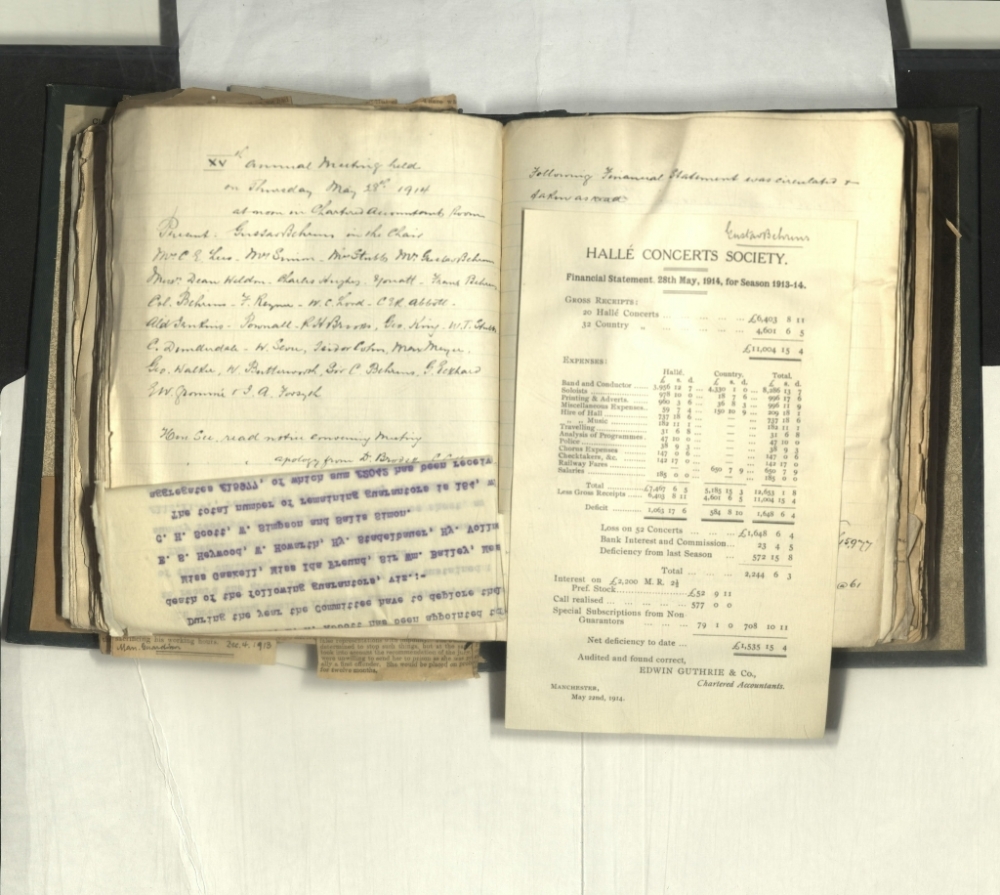 XVth Annual Meeting held
on Thursday May 28th 1914
at noon in Chartered Accountants Room
Present. Gustav Behrens in the Chair
Mrs C. E. Lees. Mrs Simon. Miss Stubbs Mrs Gustav Behrens
Messrs Dean Weldon. Charles Hughes. Frank Behrens
Col. Behrens. F. Reyner. W. C. Ford. C. E. R. Abbott.
Ald Jenkins. Pownall. R H Brooks, Geo. King. W. T. Stubbs
C. W. Isidor Cohn, Max Meyer.
Geo. Walker, W. Butterworth, Gov C. Behrens, G. Eckhard
& J. A. Forsyth
Hon Sec. read notice convening meeting
apology from Dr Brodie
aggregates £15977, of which sum £5042 has been receiv
The total number of remaining guarantors is 164,
C. H. Scott, T. Simpson and Salis Simon.
E. S. Heywood, W. Howarth, Hy. Stadelbauer, Hy.
Miss Gaskell, Miss Ida Freund, Sir Wm. Bailey,
death of the following guarantors, viz:-
During the year the Committee have to deplore the
has been appointed
his working hours.
Man. Guardian Dec. 4. 1913
determined to stop such things, but at the
for twelve months.
Following Financial Statement was circulated &
taken as read
Gustav Behrens
HALLÉ CONCERTS SOCIETY.
Financial Statement. 28th May, 1914, for Season 1913-14.
GROSS RECEIPTS:
20 Hallé Concerts ... £6,403 8 11
32 Country „ ... 4,601 6 5
£11,004 15 4
EXPENSES:
Hallé. Country. Total.
£ s. d. £ s. d. £ s. d.
Band and Conductor ... 3,956 12 7 ... 4,330 1 0 ... 8,286 13 7
Soloists ... 978 10 0 ... 18 7 6 ... 996 17 6
Printing & Adverts. ... 960 3 6 ... 36 8 3 ... 996 11 9
Miscellaneous Expenses... 59 7 4 ... 150 10 9 ... 209 18 1
Hire of Hall ... 737 18 6 ... 737 18 6
„ „ Music ... 182 11 1 ... 182 11 1
Travelling ... 31 6 8 ... 31 6 8
Analysis of Programmes... 47 10 0 ... 47 10 0
Police ... 38 9 3 ... 38 9 3
Chorus Expenses ... 147 0 6 ... 147 0 6
Checktakers, &c. ... 142 17 0 ... 142 17 0
Railway Fares ... 650 7 9 ... 650 7 9
Salaries ... 185 0 0 ... 185 0 0
Total ... £7,467 6 5 5,185 15 3 12,653 1 8
Less Gross Receipts ... 6,403 8 11 4,601 6 5 11,004 15 4
Deficit ... 1,063 17 6 584 8 10 1,648 6 4
Loss on 52 Concerts ... £1,648 6 4
Bank Interest and Commission... 23 4 5
Deficiency from last Season ... 572 15 8
Total ... 2,244 6 3
Interest on £2,200 M. R. 2½
Pref. Stock ... £52 9 11
Call realised ... 577 0 0
Special Subscriptions from Non
Guarantors ... 79 1 0 708 10 11
Net deficiency to date ... £1,535 15 4
Audited and found correct,
EDWIN GUTHRIE & Co.,
Chartered Accountants.
MANCHESTER,
May 22nd, 1914.
£15977
@ 61